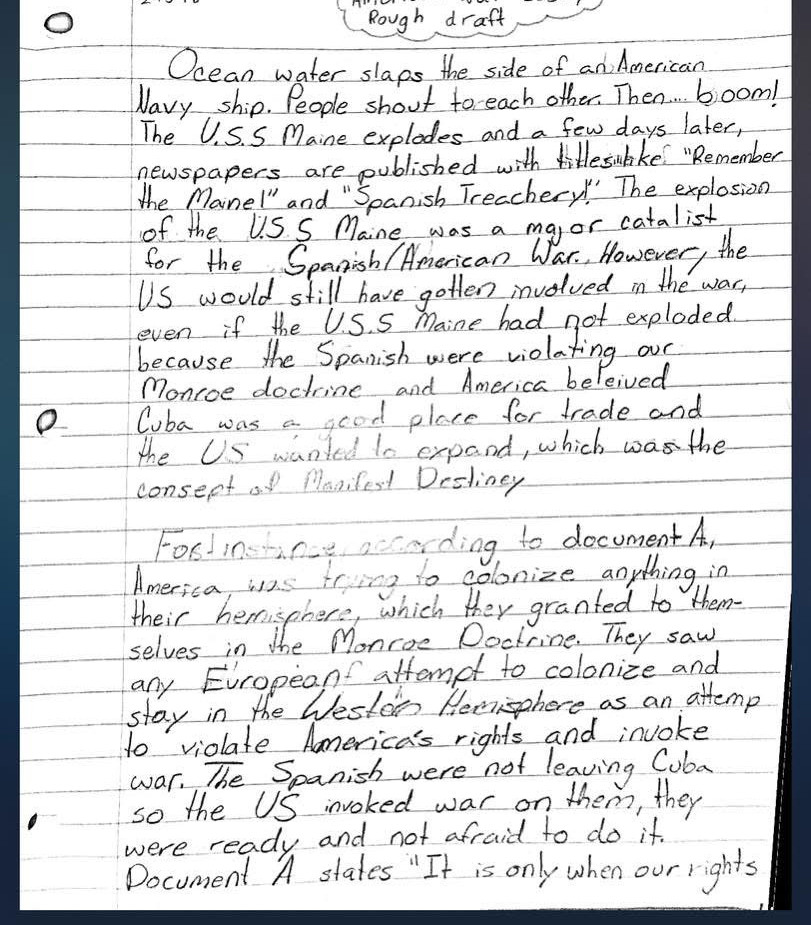 Rough draft
Ocean water slaps the side of an American
Navy ship. People shout to each other. Then... boom!
The U.S.S Maine explodes and a few days later,
newspapers are published with "Remember
the Maine!" and "Spanish Treachery!" The explosion
of the U.S.S Maine was a major catalist
for the Spanish/American War. However, the
US would still have gotten involved in the war,
even if the U.S.S Maine had not exploded
because the Spanish were violating our
Monroe doctrine and America beleived
Cuba was a good place for trade and
the US wanted to expand, which was the
consept of Manifest Destiney
For instance, according to document A,
America was trying to colonize anything in
their hemisphere, which they granted to them-
selves in the Monroe Doctrine. They saw
any European attempt to colonize and
stay in the Western Hemisphere as an attemp
to violate America's rights and invoke
war. The Spanish were not leaving Cuba
so the US invoked war on them, they
were ready and not afraid to do it.
Document A states "It is only when our rights